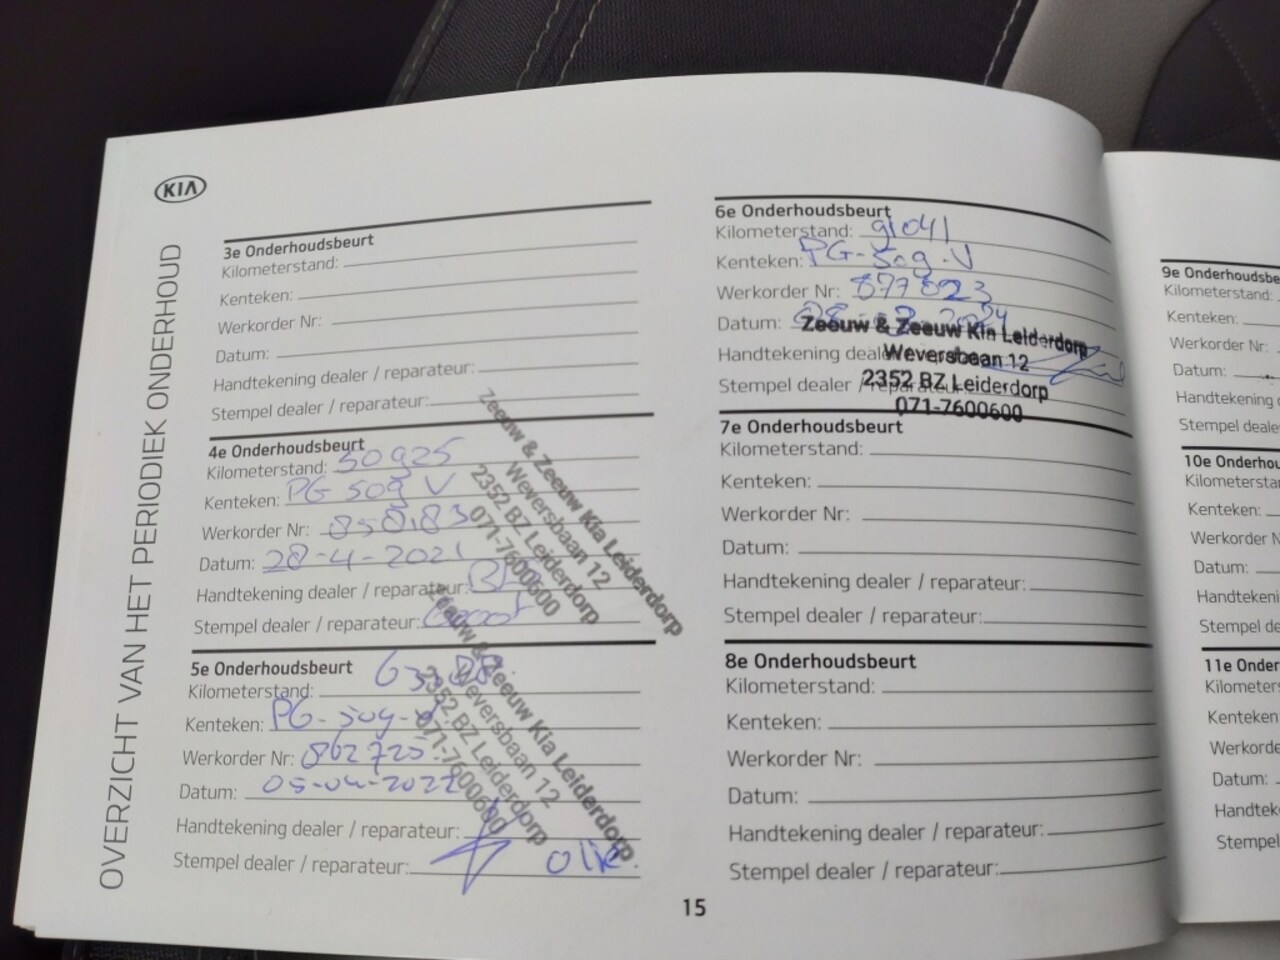 KIA
OVERZICHT VAN HET PERIODIEK ONDERHOUD
3e Onderhoudsbeurt
Kilometerstand:
Kenteken:
Werkorder Nr:
Datum:
Handtekening dealer / reparateur:
Stempel dealer / reparateur:
4e Onderhoudsbeurt
Kilometerstand: 50925
Kenteken: PG 509 V
Werkorder Nr: 858183
Datum: 28-4-2021
Handtekening dealer / reparateur:
Stempel dealer / reparateur:
Zeeuw & Zeeuw Kia Leiderdorp
Weversbaan 12
2352 BZ Leiderdorp
071-7600600
5e Onderhoudsbeurt
Kilometerstand:
Kenteken: PG-509-V
Werkorder Nr: 862725
Datum: 05-04-2022
Handtekening dealer / reparateur:
Stempel dealer / reparateur: olie
Zeeuw & Zeeuw Kia Leiderdorp
Weversbaan 12
2352 BZ Leiderdorp
071-7600600
6e Onderhoudsbeurt
Kilometerstand: 91041
Kenteken: PG-509-V
Werkorder Nr: 877823
Datum:
Handtekening dealer
Stempel dealer / reparateur:
Zeeuw & Zeeuw Kia Leiderdorp
Weversbaan 12
2352 BZ Leiderdorp
071-7600600
7e Onderhoudsbeurt
Kilometerstand:
Kenteken:
Werkorder Nr:
Datum:
Handtekening dealer / reparateur:
Stempel dealer / reparateur:
8e Onderhoudsbeurt
Kilometerstand:
Kenteken:
Werkorder Nr:
Datum:
Handtekening dealer / reparateur:
Stempel dealer / reparateur:
15
9e Onderhoudsbe
Kilometerstand:
Kenteken:
Werkorder Nr:
Datum:
Handtekening
Stempel deale
10e Onderhou
Kilometersta
Kenteken:
Werkorder N
Datum:
Handtekeni
Stempel de
11e Onder
Kilometers
Kenteken
Werkorde
Datum:
Handtek
Stempel